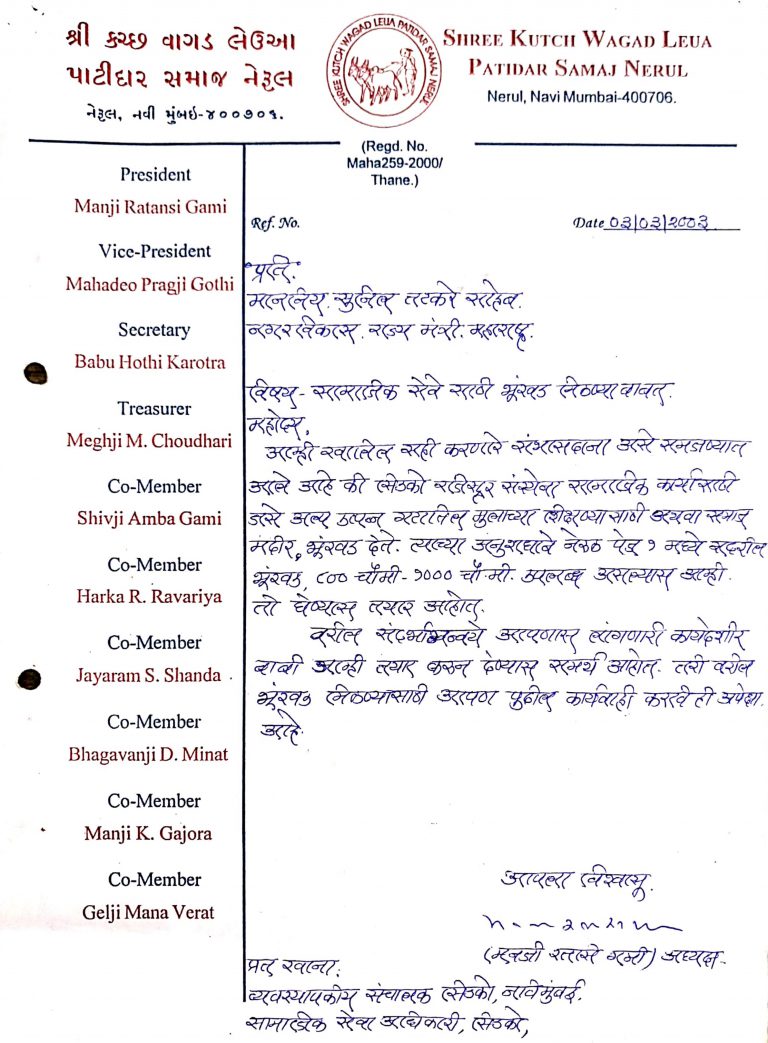 શ્રી કચ્છ વાગડ લેઉઆ
પાટીદાર સમાજ નેરૂલ
નેરૂલ, નવી મુંબઇ-૪૦૦૭૦૬.
SHREE KUTCH WAGAD LEUA PATIDAR SAMAJ NERUL
SHREE KUTCH WAGAD LEUA
PATIDAR SAMAJ NERUL
Nerul, Navi Mumbai-400706.
(Regd. No.
Maha259-2000/
Thane.)
President
Manji Ratansi Gami
Vice-President
Mahadeo Pragji Gothi
Secretary
Babu Hothi Karotra
Treasurer
Meghji M. Choudhari
Co-Member
Shivji Amba Gami
Co-Member
Harka R. Ravariya
Co-Member
Jayaram S. Shanda
Co-Member
Bhagavanji D. Minat
Co-Member
Manji K. Gajora
Co-Member
Gelji Mana Verat
Ref. No.
Date 03/03/2003
प्रति.
माननिय. सुनिल तटकरे साहेब.
नगरविकास. राज्य मंत्री. महाराष्ट्र.
विषय - सामाजिक सेवे साठी भूंखड मिळण्या बाबत.
महोदय,
आम्ही खालिल सही करणारे संभासदाना असे समजण्यात
आले आहे की सिडको रजिस्टर संस्थेला सामाजिक कार्यासाठी
जसे अल्प उत्पन गटातिल मुलाच्या शिक्षण्यासाठी अथवा समाज
मंदीर, भूंखड देते. त्याच्या अनुशधाने नेरुळ पेज १ मध्ये सदरील
भूंखड, ८०० चौ.मी - १००० चौ.मी. उपलब्ध असल्यास आम्ही.
तो घेण्यास तयार आहोत.
वरील संदर्भान्वये आपणास लागणारी कायदेशीर
बाबी आम्ही तयार करून देण्यास समर्थ आहोत. तरी वरील
भूंखड मिळण्यासाठी आपण पुढील कार्यवाही करावे ही अपेक्षा.
आहे.
आपला विश्वासू.
(मनजी रतासे गामी) अध्यक्ष.
प्रत रवाना.
व्यवस्थापकीय संचालक सिडको, नविमुंबई.
सामाजिक सेवा अधिकारी, सिडको,